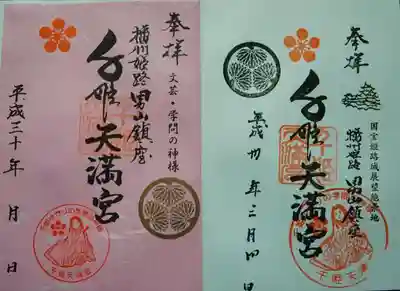 奉拝
文芸・学問の神様
播州姫路
男山鎮座
千姫天満宮
平成三十年 月 日
千姫天満宮
奉拝
国宝姫路城展望
播州姫路
男山鎮座
千姫天満宮
平成卅年三月四日
千姫天満